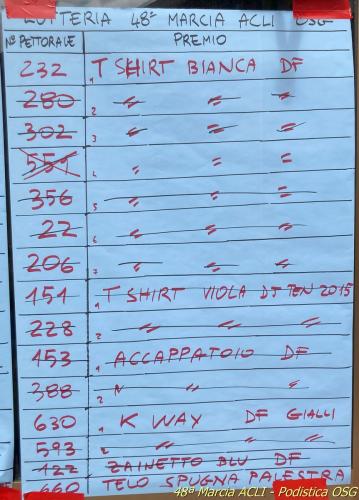 LOTTERIA 48ª MARCIA ACLI OSG
Nº PETTORALE PREMIO
232 1 T SHIRT BIANCA DF
280 2 " " "
302 3 " " "
551 4 " "
356 5 " " "
22 6 " " "
206 7 " " "
151 1 T SHIRT VIOLA DJ TEN 2015
228 2 " " "
153 1 ACCAPPATOIO DF
388 2 " " "
630 1 K WAY DF GIALLI
593 2 " " "
122 ZAINETTO BLU DF
660 TELO SPUGNA PALESTRA
48ª Marcia ACLI - Podistica OSG